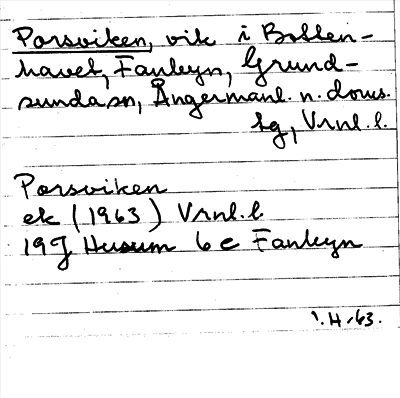 Porsviken, vik i Botten-
havet, Fanbyn, Grund-
sunda sn, Ångermanl. n. doms.
sg, Vrnl. l.
Porsviken
ek (1963) Vrnl. l
19J Husum 6 e Fanbyn
I.H-63.